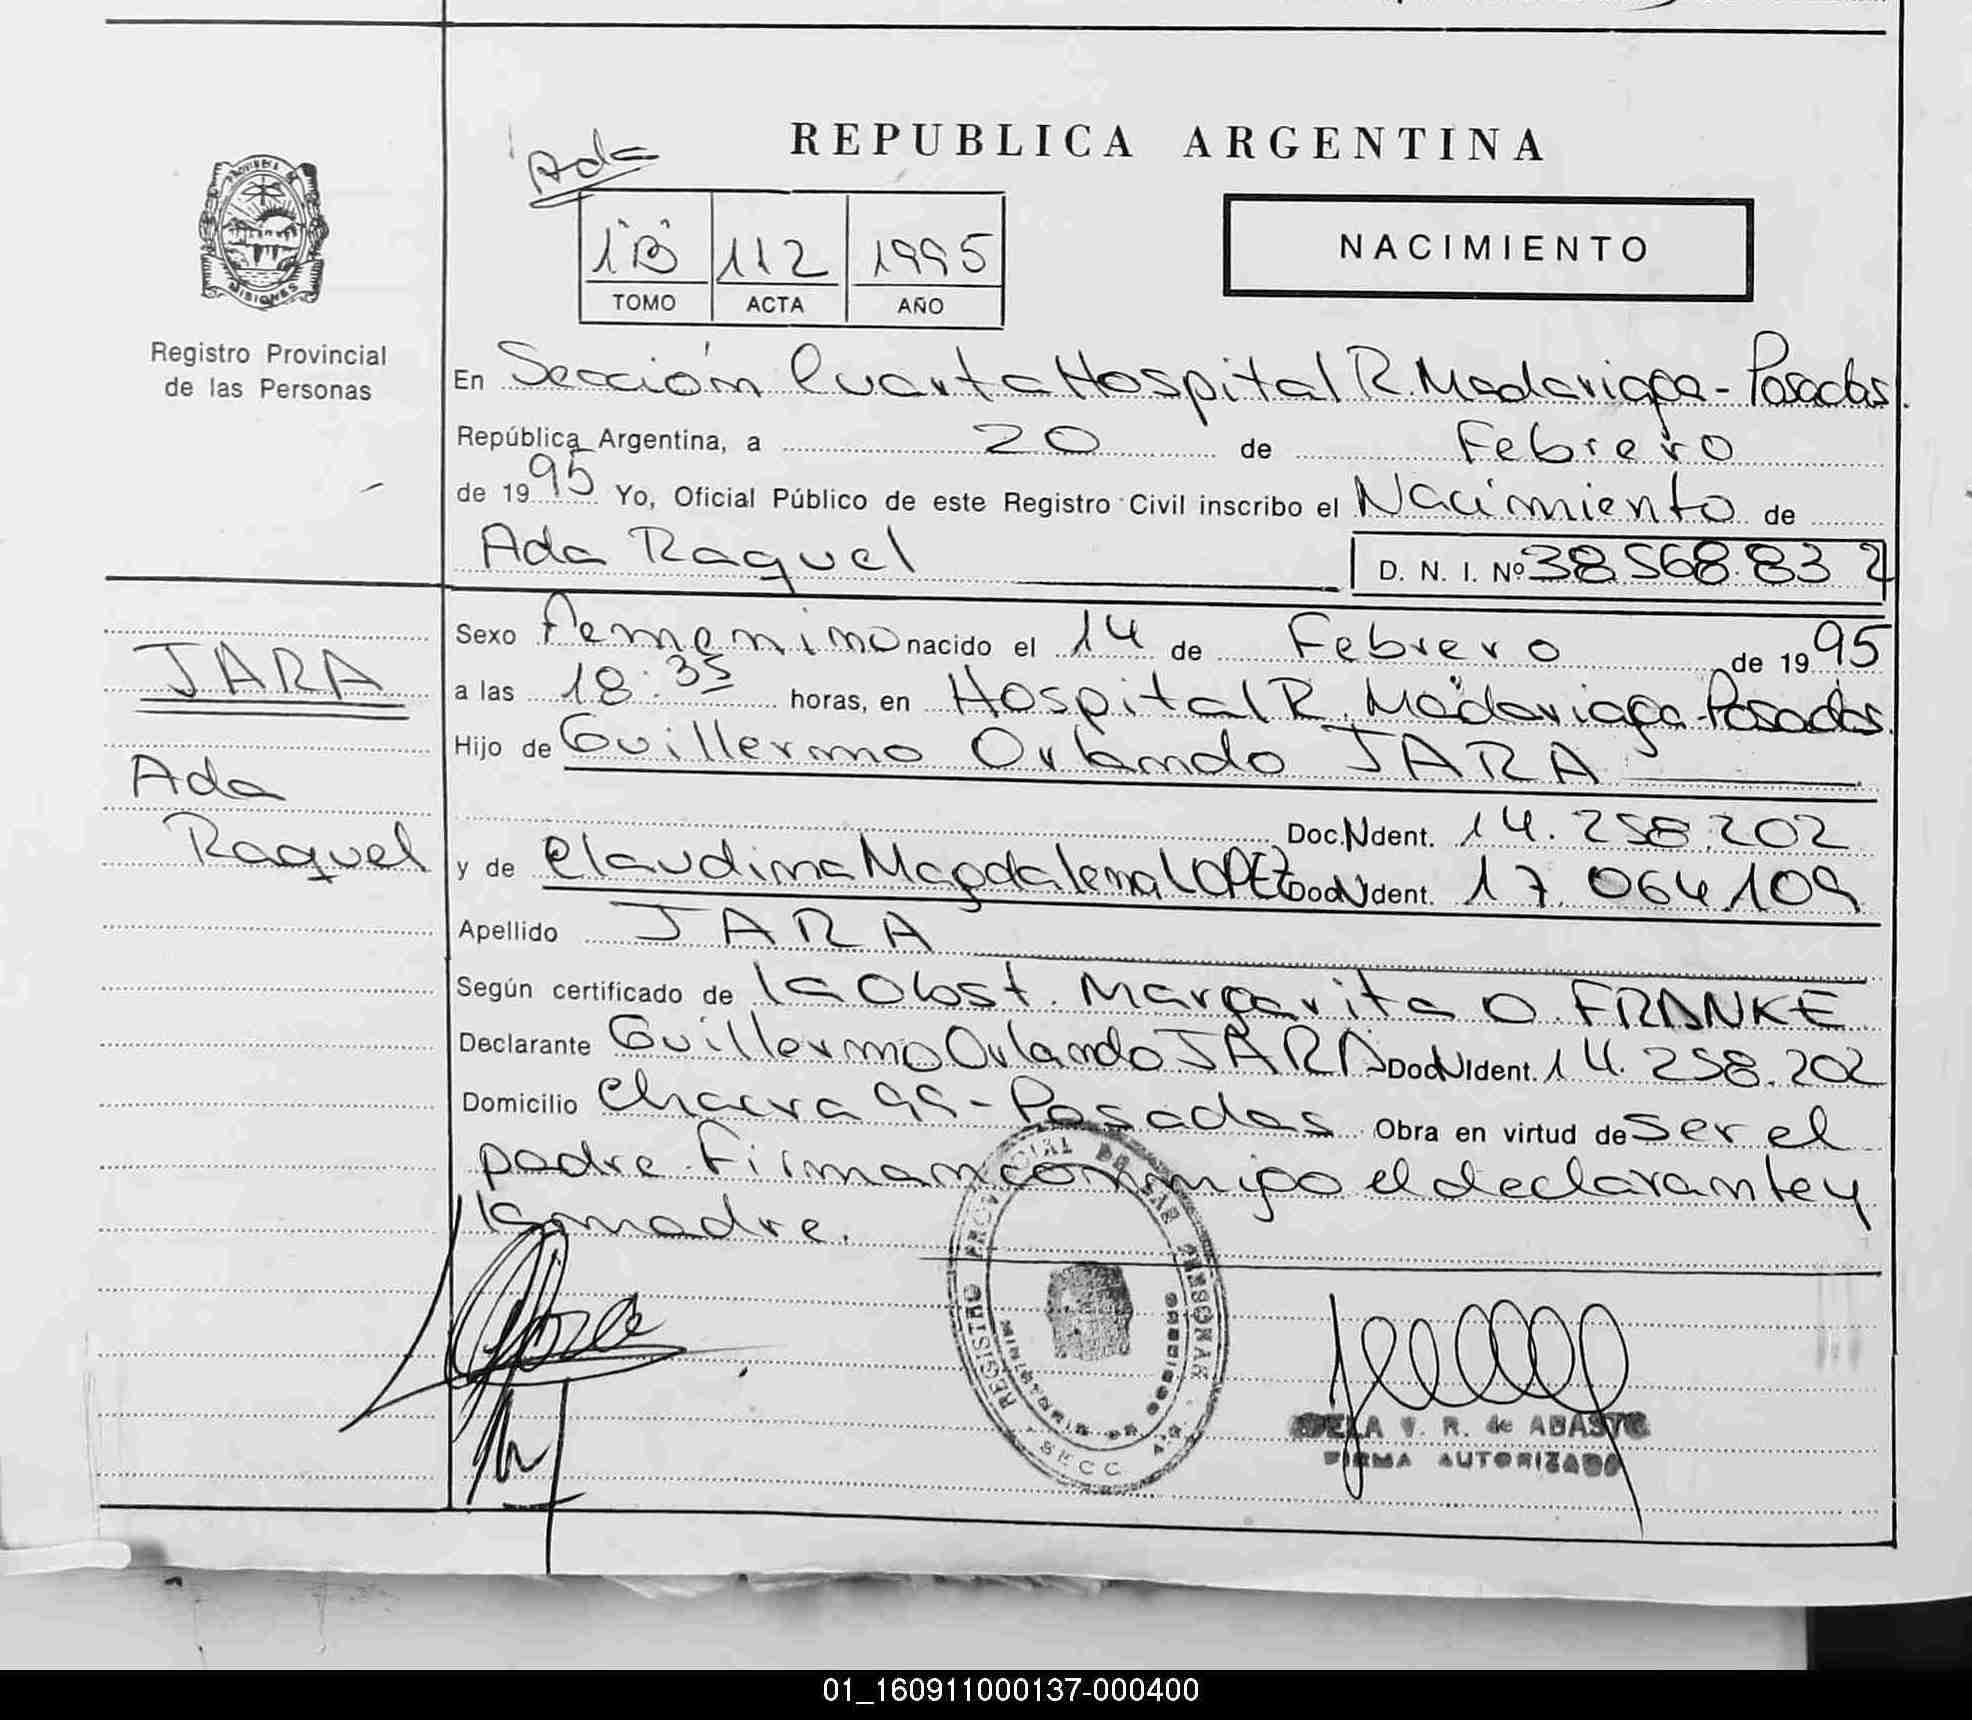 REPUBLICA ARGENTINA
Ada
1"B" 112 1995
TOMO ACTA AÑO
NACIMIENTO
PROVINCIA DE
MISIONES
Registro Provincial
de las Personas
En Sección Cuarta Hospital R. Madariaga - Posadas.
República Argentina, a 20 de Febrero
de 1995 Yo, Oficial Público de este Registro Civil inscribo el Nacimiento de
Ada Raquel D. N. I. Nº 38.568.832
JARA
Ada
Raquel
Sexo Femenino nacido el 14 de Febrero de 1995
a las 18:35 horas, en Hospital R. Madariaga - Posadas.
Hijo de Guillermo Orlando JARA
Doc.NIdent. 14.258.202
y de Claudina Magdalena LOPEZ Doc.NIdent. 17.064.109
Apellido JARA
Según certificado de la Obst. Margarita O. FRANKE
Declarante Guillermo Orlando JARA Doc.NIdent. 14.258.202
Domicilio Chacra 99 - Posadas Obra en virtud de ser el
padre. Firman conmigo el declarante y
la madre.
REGISTRO PROVINCIAL DE LAS PERSONAS
MINISTERIO DE GOBIERNO
SECC. 4a.
V. R. de ABASTO
FIRMA AUTORIZADA
01_160911000137-000400